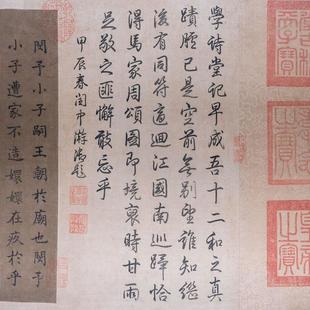 學詩堂記早成吾十二和之真
蹟臚已是空前無別望誰知繼
後有同符適迴江國南巡蹕恰
得馬家周頌圖即境時甘雨
足敬之匪懈敢忘乎
甲辰春閏中澣御題
閔予小子嗣王朝於廟也閔予
小子遭家不造嬛嬛在疚於乎